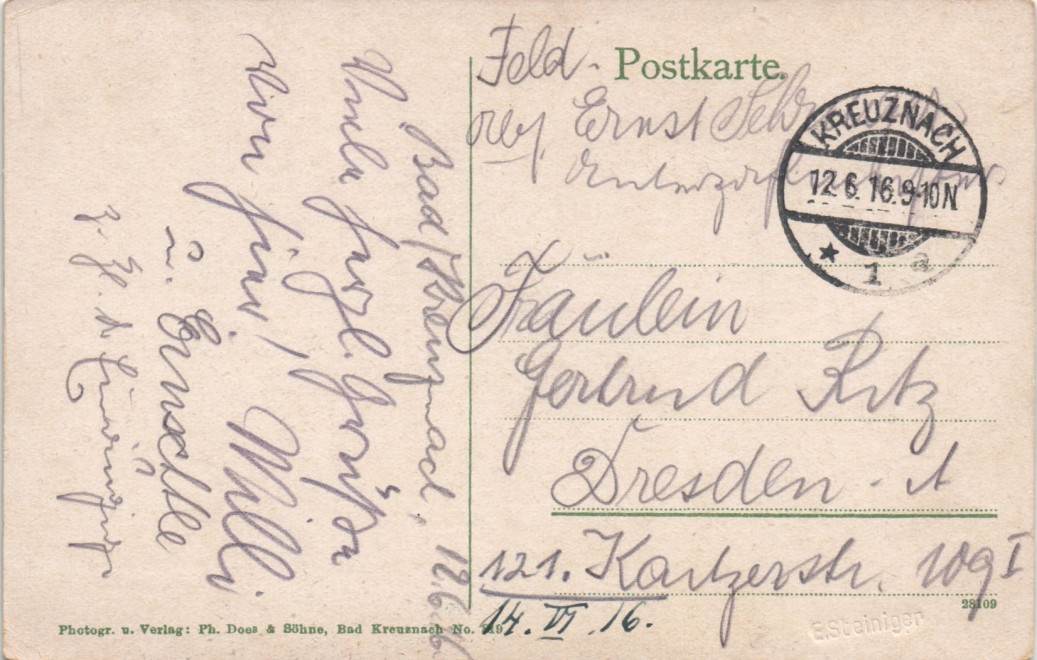 Bad Kreuznach. 12.6.16
Viele herzl. Grüße
von hier, Willi
u. Ernstle
z. Zt. d.
Feld - Postkarte.
Ernst
KREUZNACH
12.6.16.9-10N
* 1 a
Fräulein
Gertrud Ritz
Dresden - A
121. Kaitzerstr. 109 I
14. VI. 16.
28109
Photogr. u. Verlag: Ph. Does & Söhne, Bad Kreuznach No.
E.Steiniger